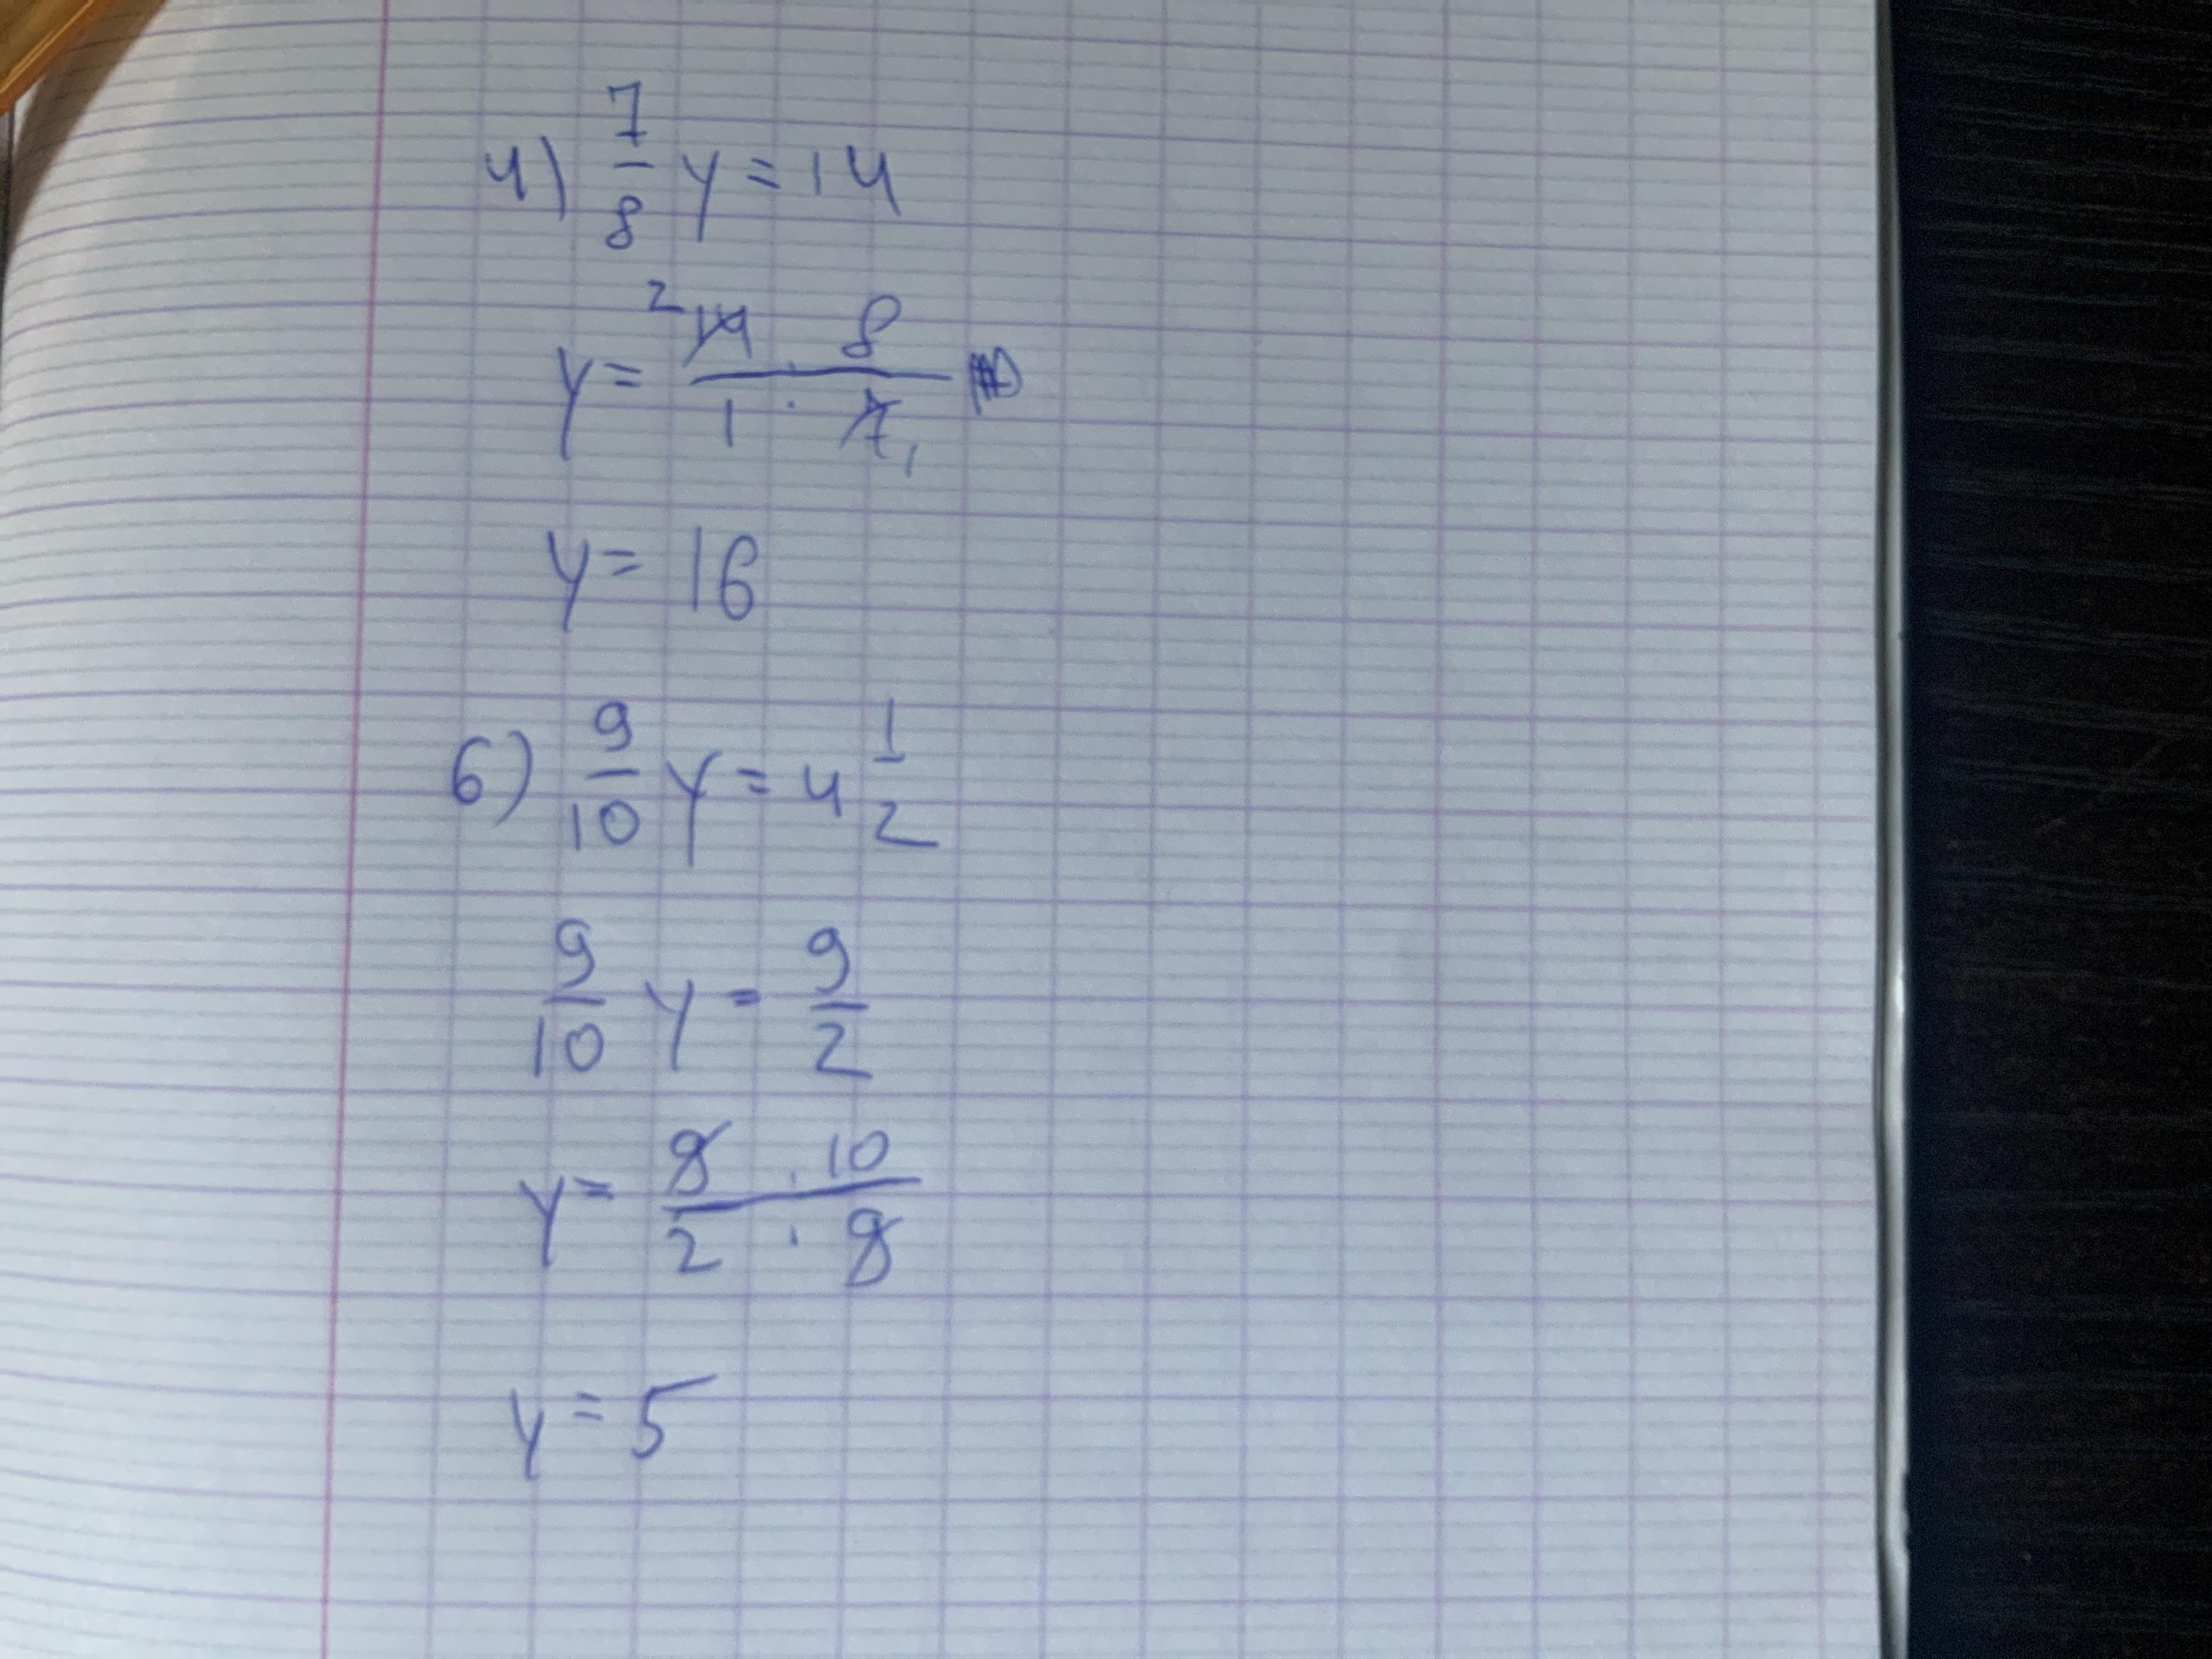 4) 7/8 y = 14
y = 2 14 · 8 / 1 · 7 1
y = 16
6) 9/10 y = 4 1/2
9/10 y = 9/2
y = 9 · 10 / 2 · 9
y = 5